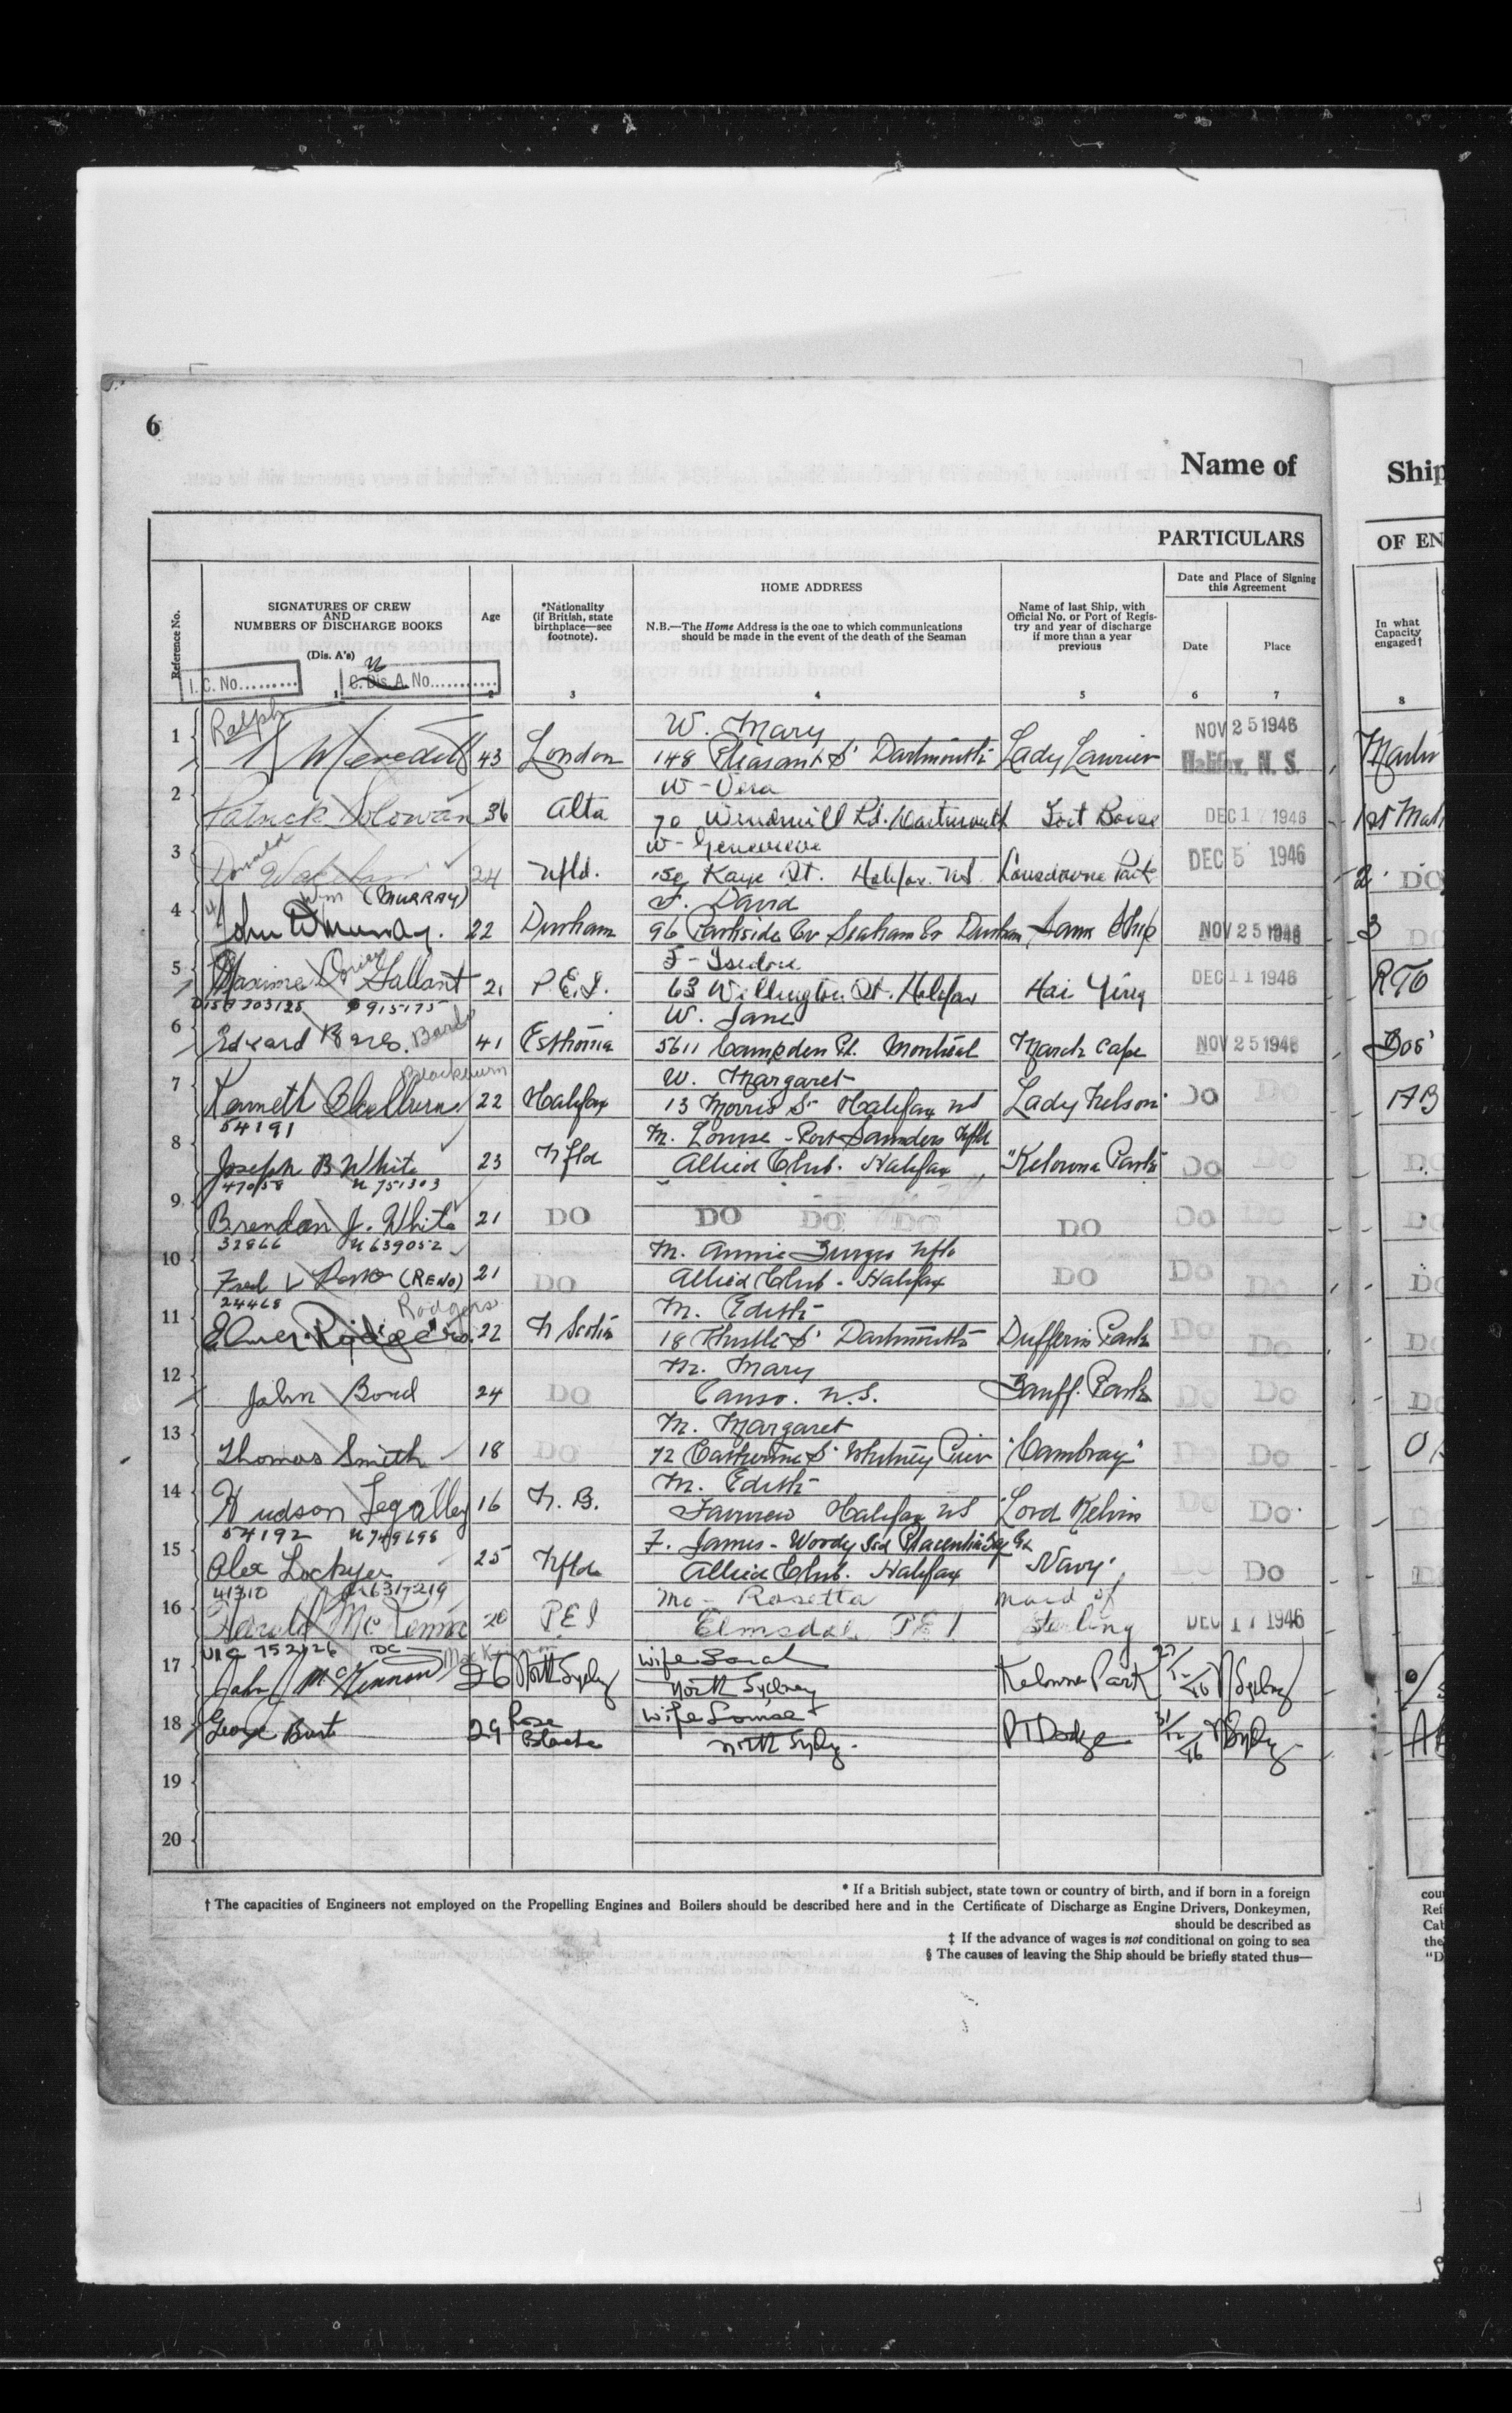 6
Name of
Ship
PARTICULARS
OF EN
Reference No.
SIGNATURES OF CREW
AND
NUMBERS OF DISCHARGE BOOKS
(Dis. A's)
I. C. No..........
C. Dis. A. No............
1
Age
2
*Nationality
(if British, state
birthplace—see
footnote).
3
HOME ADDRESS
N.B.—The Home Address is the one to which communications
should be made in the event of the death of the Seaman
4
Name of last Ship, with
Official No. or Port of Regis-
try and year of discharge
if more than a year
previous
5
Date and Place of Signing
this Agreement
Date
6
Place
7
In what
Capacity
engaged†
8
1
Ralph
Meredith 43 London
W. Mary
148 Pleasant St Dartmouth Lady Laurier
NOV 25 1946
Halifax, N. S.
2
Patrick 36 Alta
W - Vera
70 Windmill Rd. Dartmouth Fort Boise DEC 17 1946 1st Mat
3
Donald 24 Nfld.
W - Genevieve
150 Kaye St. Halifax. N.S. Lansdowne Park DEC 5 1946 2 DO
4
Wm (MURRAY)
John W Murray. 22 Durham
F. David
96 Parkside Cr Seaham Durham Same Ship NOV 25 1946 3 DO
5
Maxime Gallant 21 P.E.I.
F - Isidore
63 Wellington St. Halifax Hai Ying DEC 11 1946
6
Edward Bards. 41 Esthonia
W. Jane
5611 Campden Pl. Montreal March Cape NOV 25 1946 Bos
7
Blackburn
Kenneth Blackburn 22 Halifax
W. Margaret
13 Morris St Halifax NS Lady Nelson Do AB
54191
8
Joseph B White 23 Nfld
M. Louise - Port Saunders Nfld
Allied Club. Halifax "Kelowna Park" Do Do DO
47058 U 751303
9
Brendan J. White 21 DO DO DO DO DO Do Do DO
32866 U 639052
10
Fred L Reno (RENO) 21 DO
M. Annie Burgeo Nfld
Allied Club - Halifax DO Do Do DO
24468
11
Rodgers
Elmer Rodgers. 22 N Scotia
M. Edith
18 Thistle St Dartmouth Dufferin Park Do Do DO
12
John Bond 24 DO
M. Mary
Canso. N.S. Banff. Park Do Do DO
13
Thomas Smith 18 DO
M. Margaret
72 Catherine St Whitney Pier "Cambray" Do Do
14
Hudson Legalley 16 N. B.
M. Edith
Fairview Halifax NS Lord Kelvin Do Do
54192 U 749698
15
Alex Lockyer 25 Nfld
F. James - Woody Isd Placentia Bay
Allied Club. Halifax Navy Do
41310
16
Harold 20 P E I
Mo - Rosetta
Elmsdale P E I
Maid of
Sterling DEC 17 1946
17
John J McKinnon 26 North Sydney
Wife Sarah
North Sydney Kelowna Park N Sydney
18
George Burt 29 Rose
Blanche
Wife Louise
North Sydney. P T Dodge 31/12/46 N Sydney
19
20
* If a British subject, state town or country of birth, and if born in a foreign
† The capacities of Engineers not employed on the Propelling Engines and Boilers should be described here and in the Certificate of Discharge as Engine Drivers, Donkeymen,
should be described as
‡ If the advance of wages is not conditional on going to sea
§ The causes of leaving the Ship should be briefly stated thus—